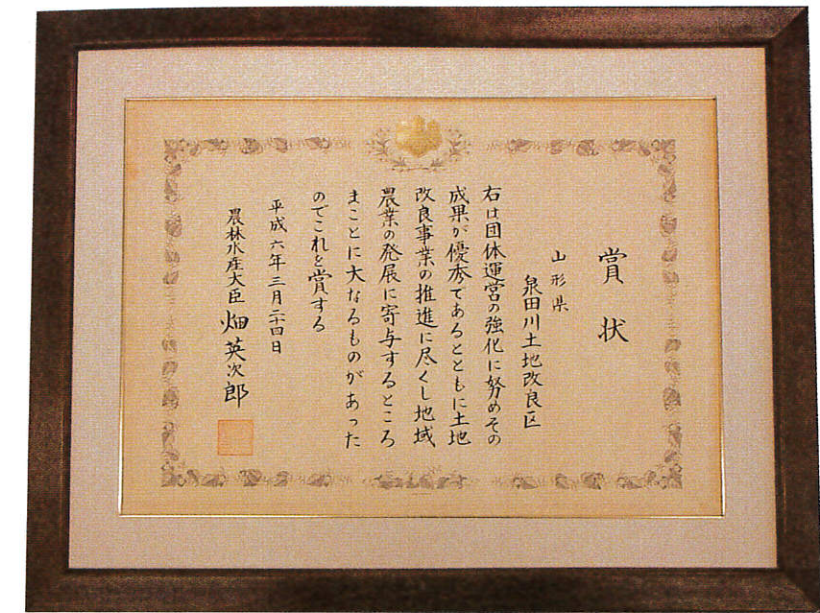 賞状
山形県
泉田川土地改良区
右は団体運営の強化に努めその
成果が優秀であるとともに土地
改良事業の推進に尽くし地域
農業の発展に寄与するところ
まことに大なるものがあった
のでこれを賞する
平成六年三月二十四日
農林水産大臣 畑英次郎